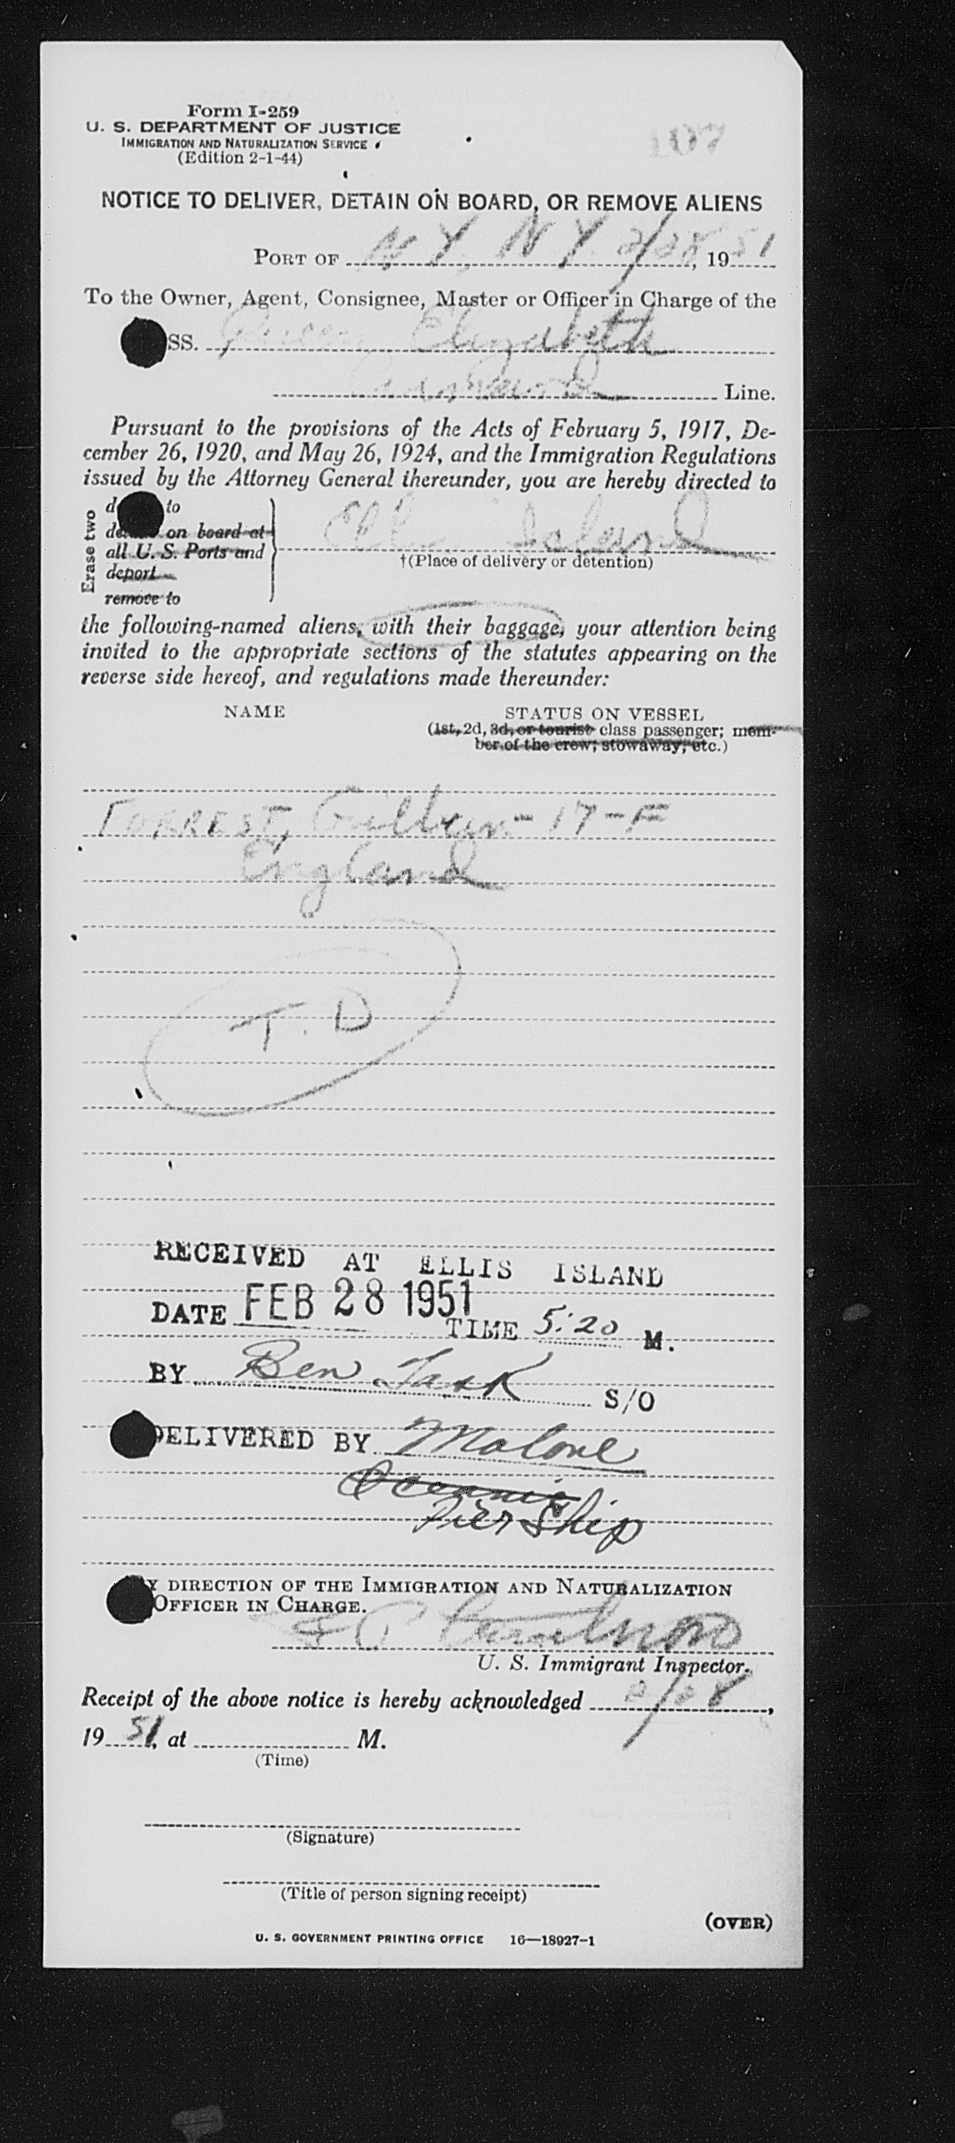 Form I-259
U. S. DEPARTMENT OF JUSTICE
IMMIGRATION AND NATURALIZATION SERVICE
(Edition 2-1-44)
107
NOTICE TO DELIVER, DETAIN ON BOARD, OR REMOVE ALIENS
PORT OF N Y, N Y. 2/28, 1951
To the Owner, Agent, Consignee, Master or Officer in Charge of the
SS. Queen Elizabeth
Cunard Line.
Pursuant to the provisions of the Acts of February 5, 1917, De-
cember 26, 1920, and May 26, 1924, and the Immigration Regulations
issued by the Attorney General thereunder, you are hereby directed to
Erase two
to
on board at
all U. S. Ports and
deport
remove to
Ellis Island
†(Place of delivery or detention)
the following-named aliens, with their baggage, your attention being
invited to the appropriate sections of the statutes appearing on the
reverse side hereof, and regulations made thereunder:
NAME STATUS ON VESSEL
(1st, 2d, 3d, or tourist class passenger; mem-
ber of the crew; stowaway, etc.)
FORREST, - 17 - F
England
T. D
RECEIVED AT ELLIS ISLAND
DATE FEB 28 1951 TIME 5:20 M.
BY Ben Task S/O
DELIVERED BY Malone
Oceanic
Pier Ship
BY DIRECTION OF THE IMMIGRATION AND NATURALIZATION
OFFICER IN CHARGE.
U. S. Immigrant Inspector.
Receipt of the above notice is hereby acknowledged 2/28,
1951, at M.
(Time)
(Signature)
(Title of person signing receipt)
(OVER)
U. S. GOVERNMENT PRINTING OFFICE 16—18927-1